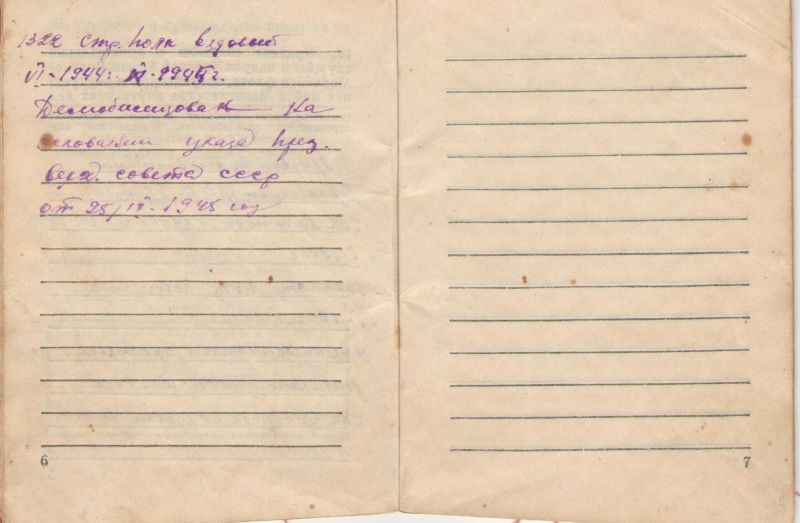 1322 стр. полк ездовый
VI - 1944 г. XI - 1945 г.
Демобилизован на
основании указа през.
верх. совета ссср
от 25/IX - 1945 год
6
7